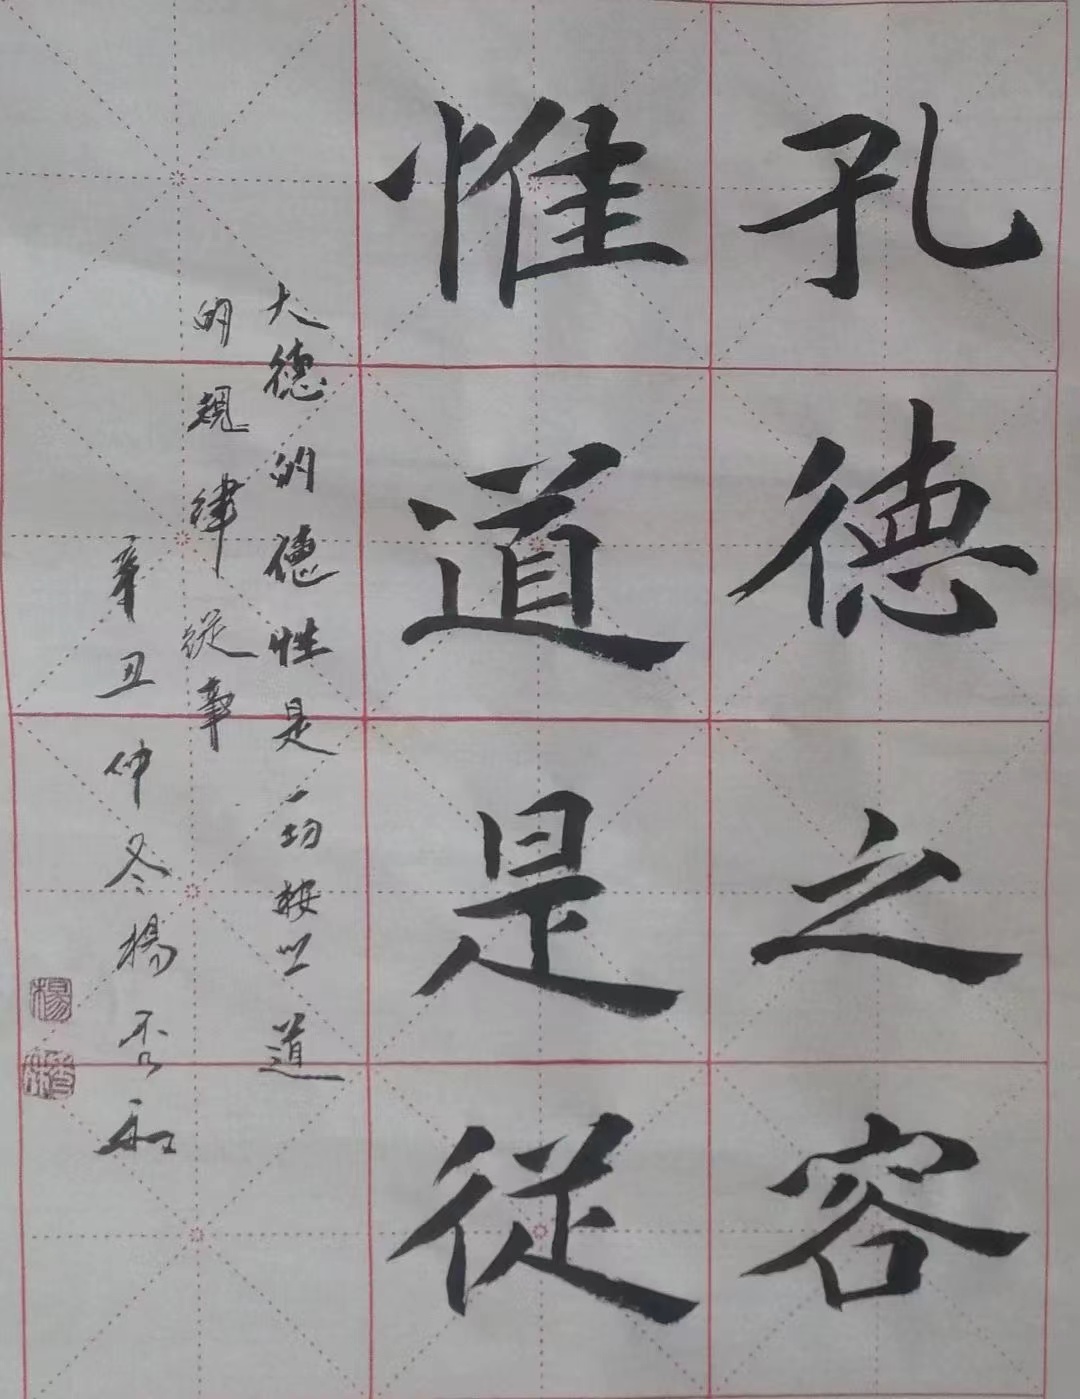 孔德之容
惟道是從
大德的德性是一切按照道
的規律從事
辛丑仲冬楊
楊